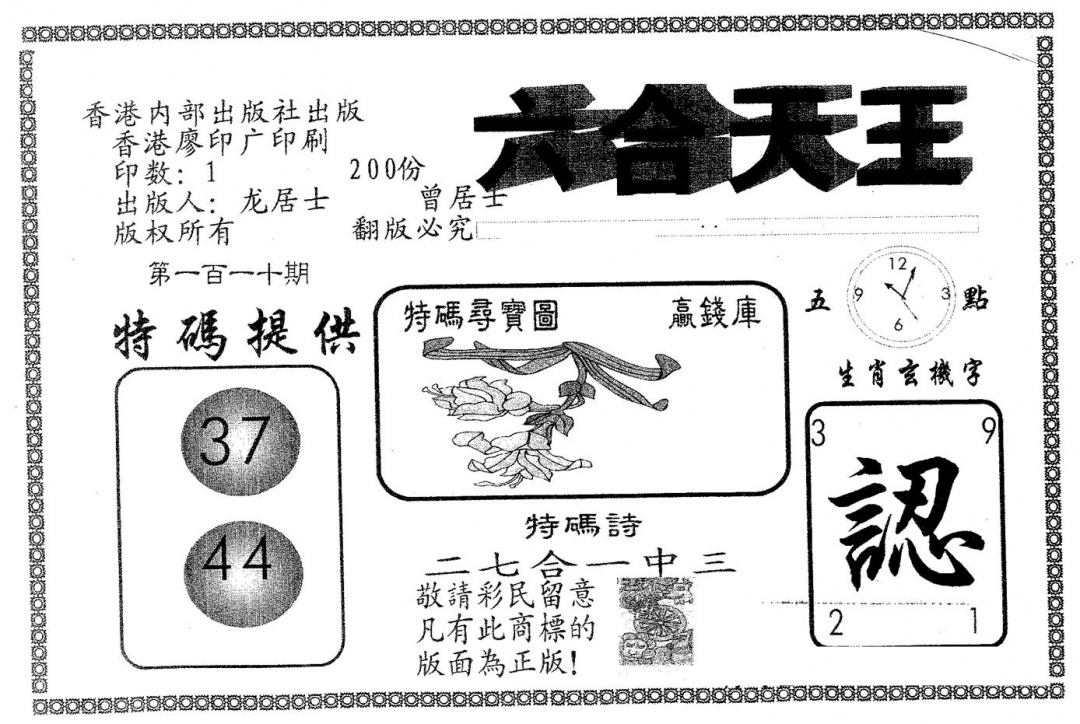 六合天王
香港内部出版社出版
香港廖印广印刷
印数: 1 200份
出版人: 龙居士 曾居士
版权所有 翻版必究
第一百一十期
特碼提供
37
44
特碼尋寶圖 贏錢庫
特碼詩
二七合一中三
敬請彩民留意
凡有此商標的
版面為正版!
五 點
12
9 3
6
生肖玄機字
3 9
認
2 1